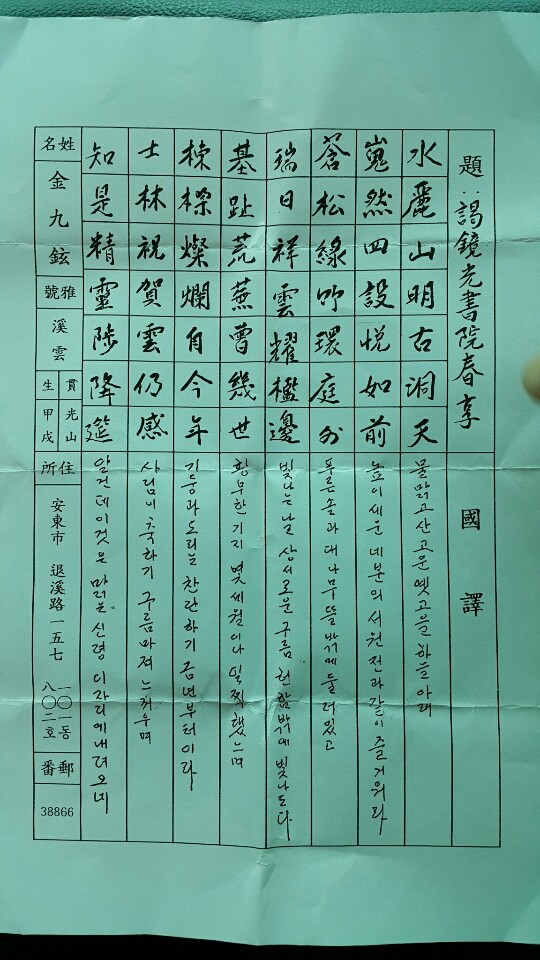 題:謁鏡光書院春享
國譯
水麗山明古洞天
물맑고 산고운 옛고을 하늘 아래
嵬然四設悦如前
높이 세운 네분의 서원 전과 같이 즐거워라
蒼松綠竹環庭外
푸른솔과 대나무 뜰 밖에 둘러있고
瑞日祥雲耀檻邊
빛나는 날 상서로운 구름 헌함밖에 빛나도다
基趾荒蕪曾幾世
황무한 기지 몇 세월이나 일찍 했느며
棟樑燦爛自今年
기둥과 도리는 찬란하기 금년부터이라
士林祝賀雲仍感
사림이 축하기 구름마져 느껴우며
知是精靈陟降筵
알건데 이것은 맑은 신령 이 자리에 내려오네
姓名
金九鉉
雅號
溪雲
貫 光山
生 甲戌
住所
安東市 退溪路一五七
一〇一동
八〇二호
郵番
38866